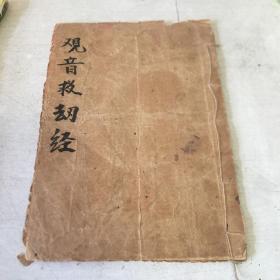 观音救劫经